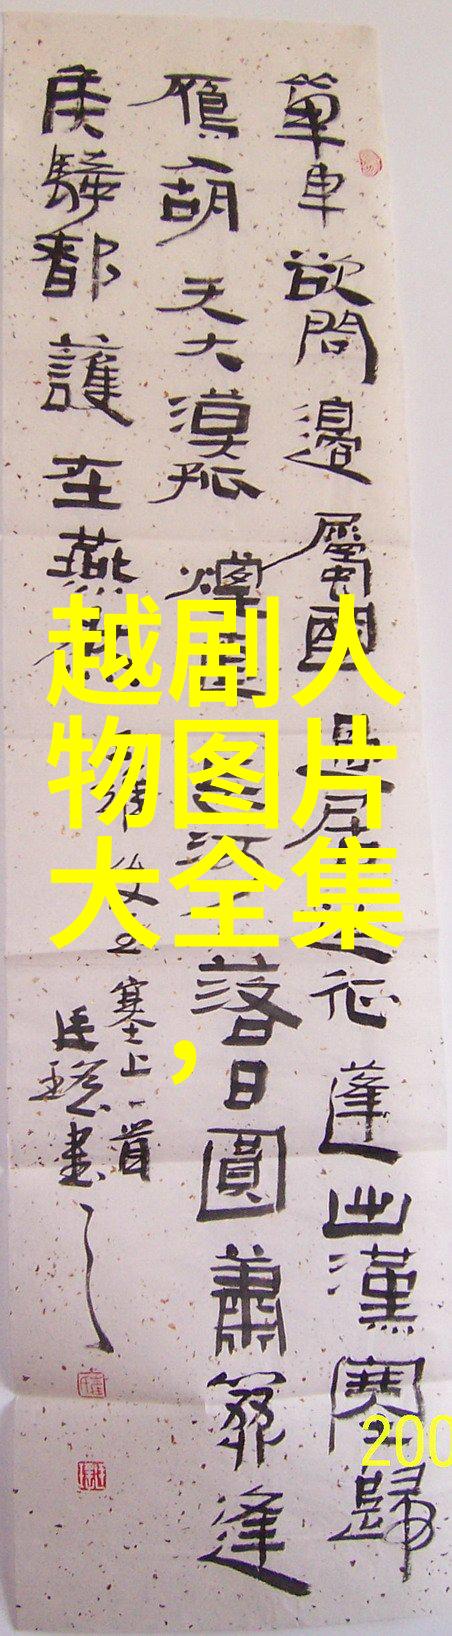 單車欲問邊屬國過居延征蓬出漢塞歸
鴈入胡天大漠孤煙直長河落日圓蕭關逢
侯騎都護在燕然
王維使至塞上一首
書
越剧人
物图片
大全集
，
200